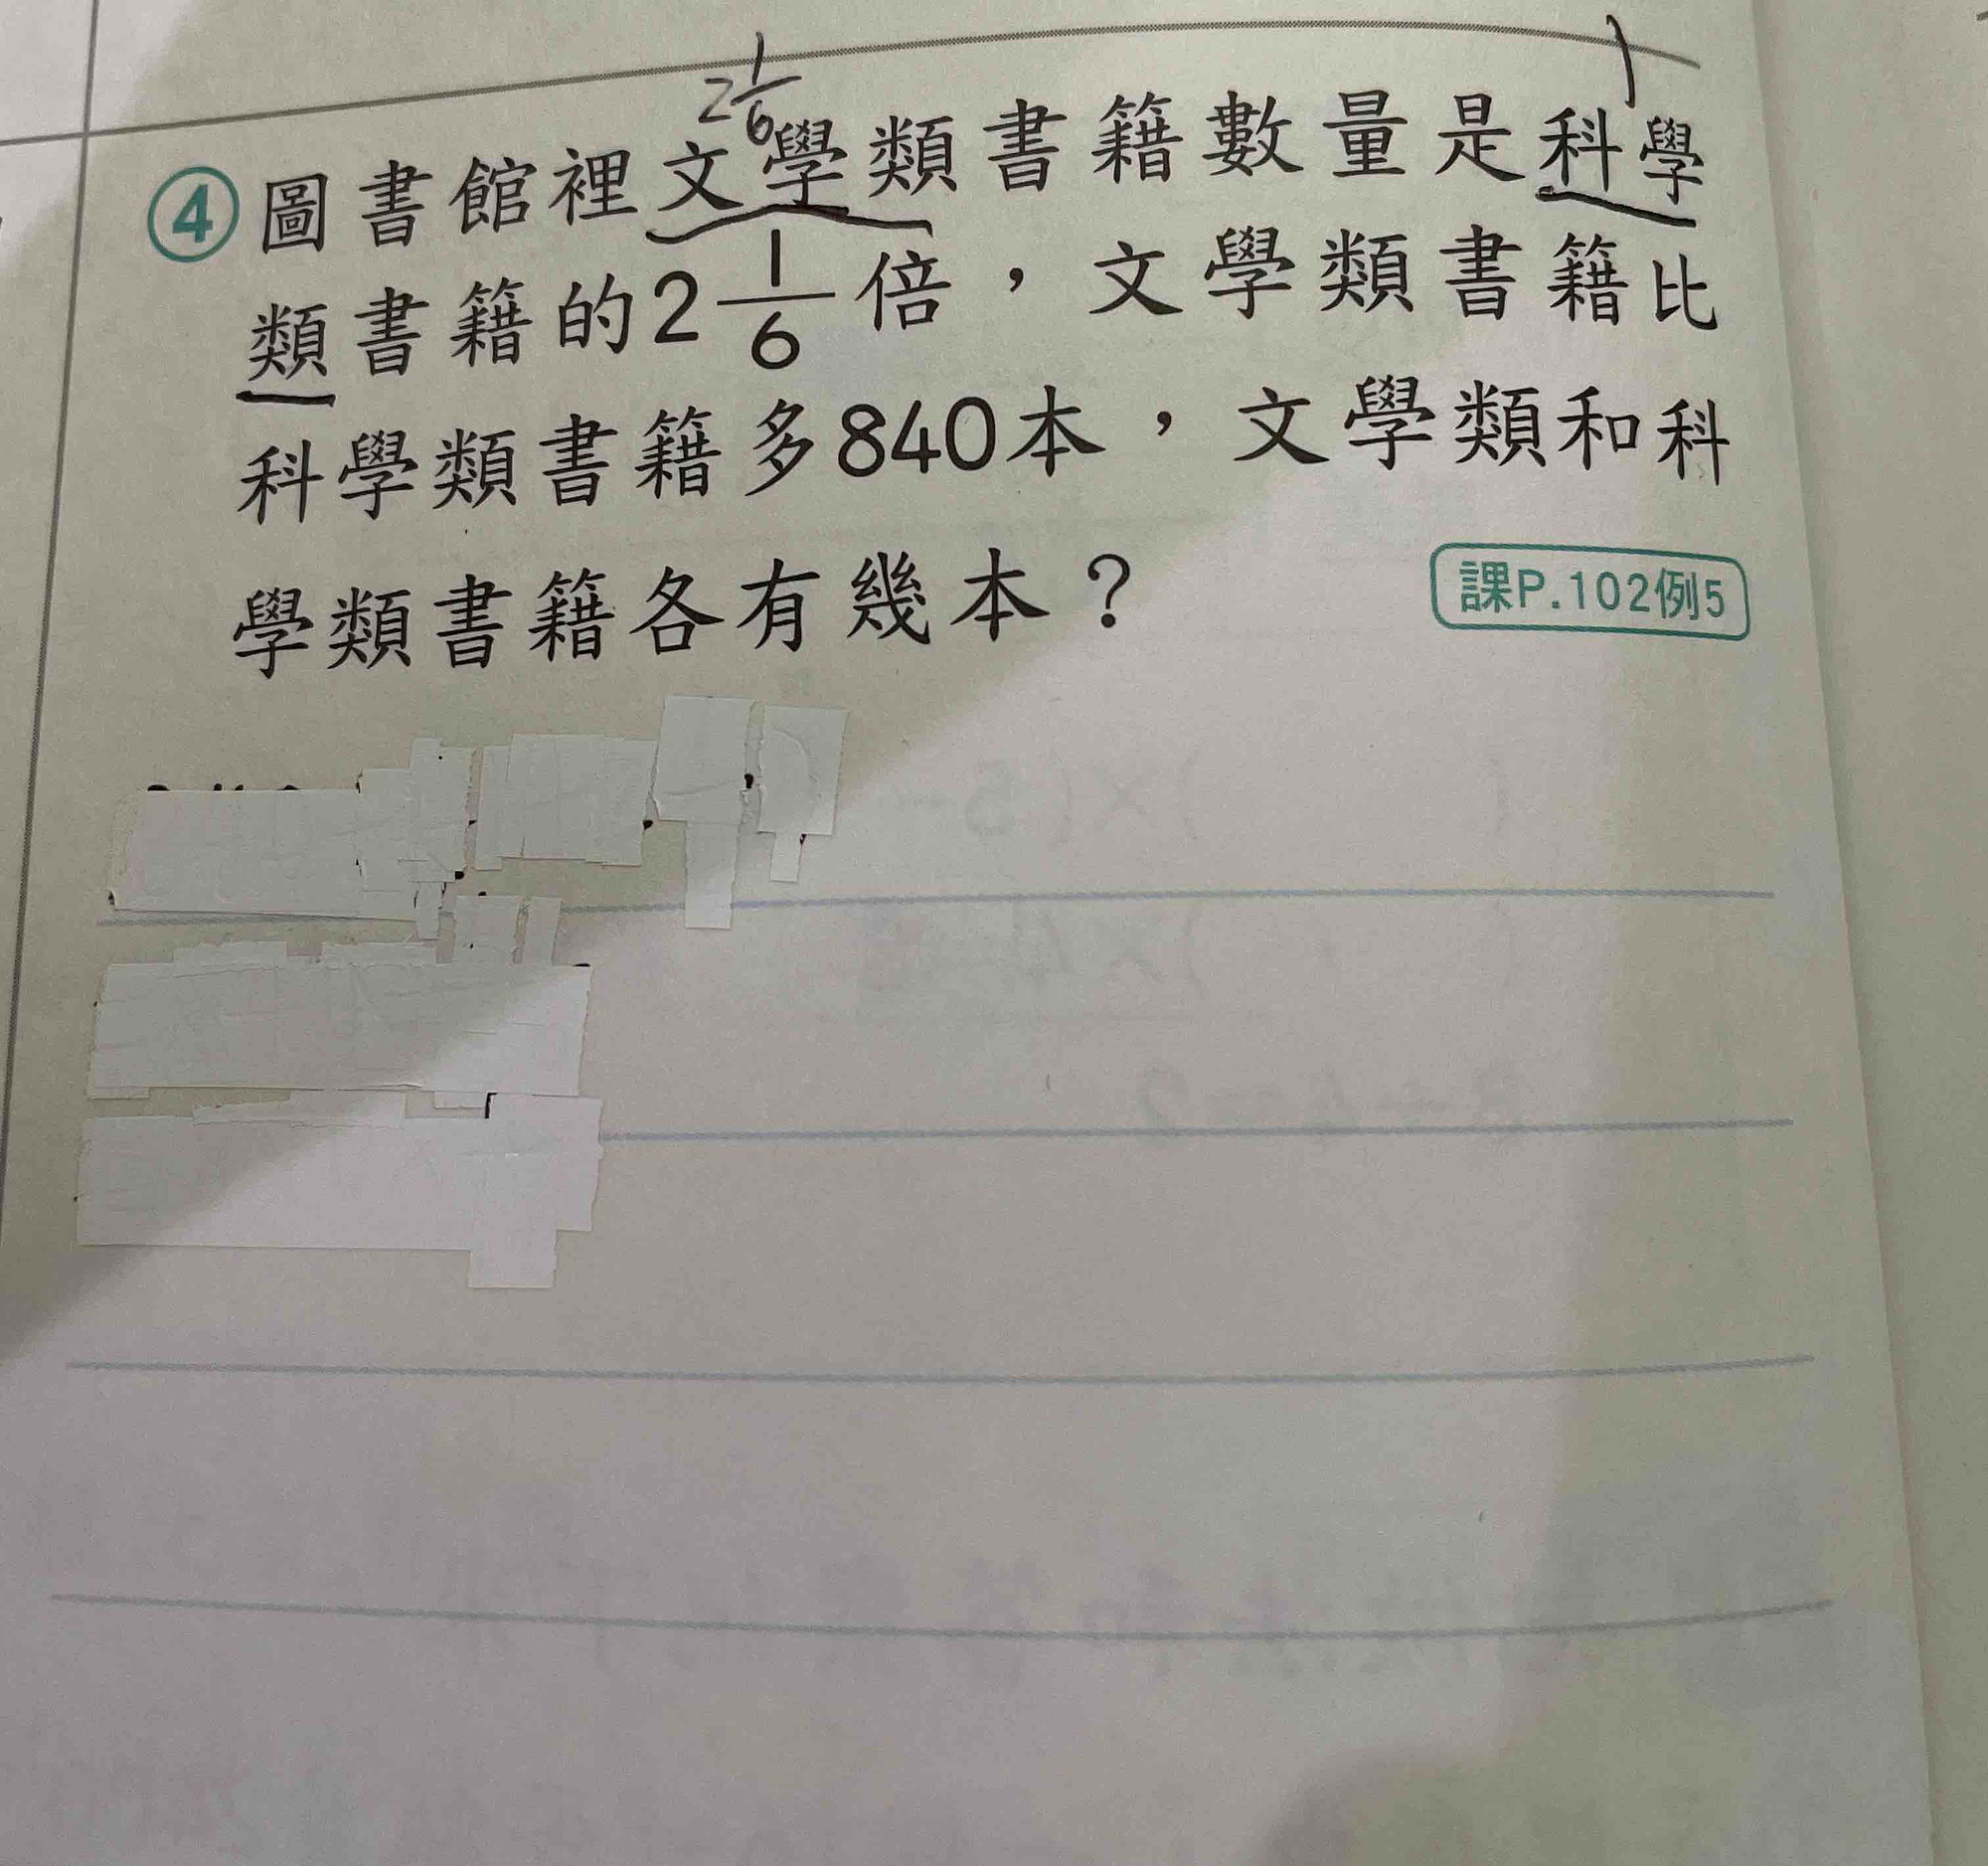 2 1/6
1
④圖書館裡文學類書籍數量是科學
類書籍的2 1/6 倍,文學類書籍比
科學類書籍多840本,文學類和科
學類書籍各有幾本?
課P.102例5